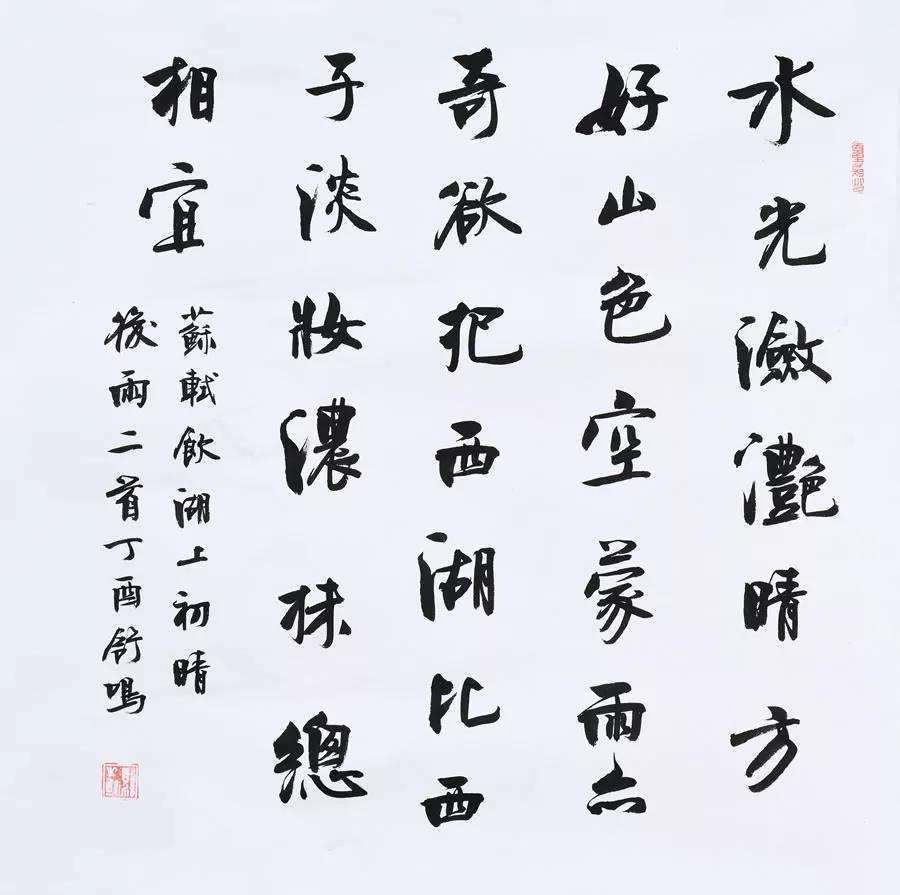 水光瀲灧晴方
好山色空蒙雨亦
奇欲把西湖比西
子淡妝濃抹總
相宜
蘇軾飲湖上初晴
後雨二首丁酉舒鳴